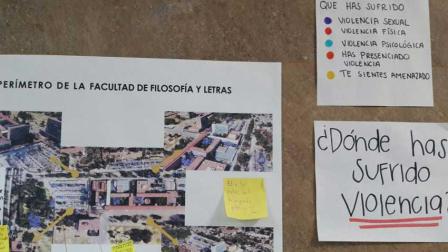 QUE HAS SUFRIDO
VIOLENCIA SEXUAL
VIOLENCIA FÍSICA
VIOLENCIA PSICOLÓGICA
HAS PRESENCIADO
VIOLENCIA
TE SIENTES AMENAZADO
PERÍMETRO DE LA FACULTAD DE FILOSOFÍA Y LETRAS
¿Dónde has
SUFRIDO
VIOLENCIA?